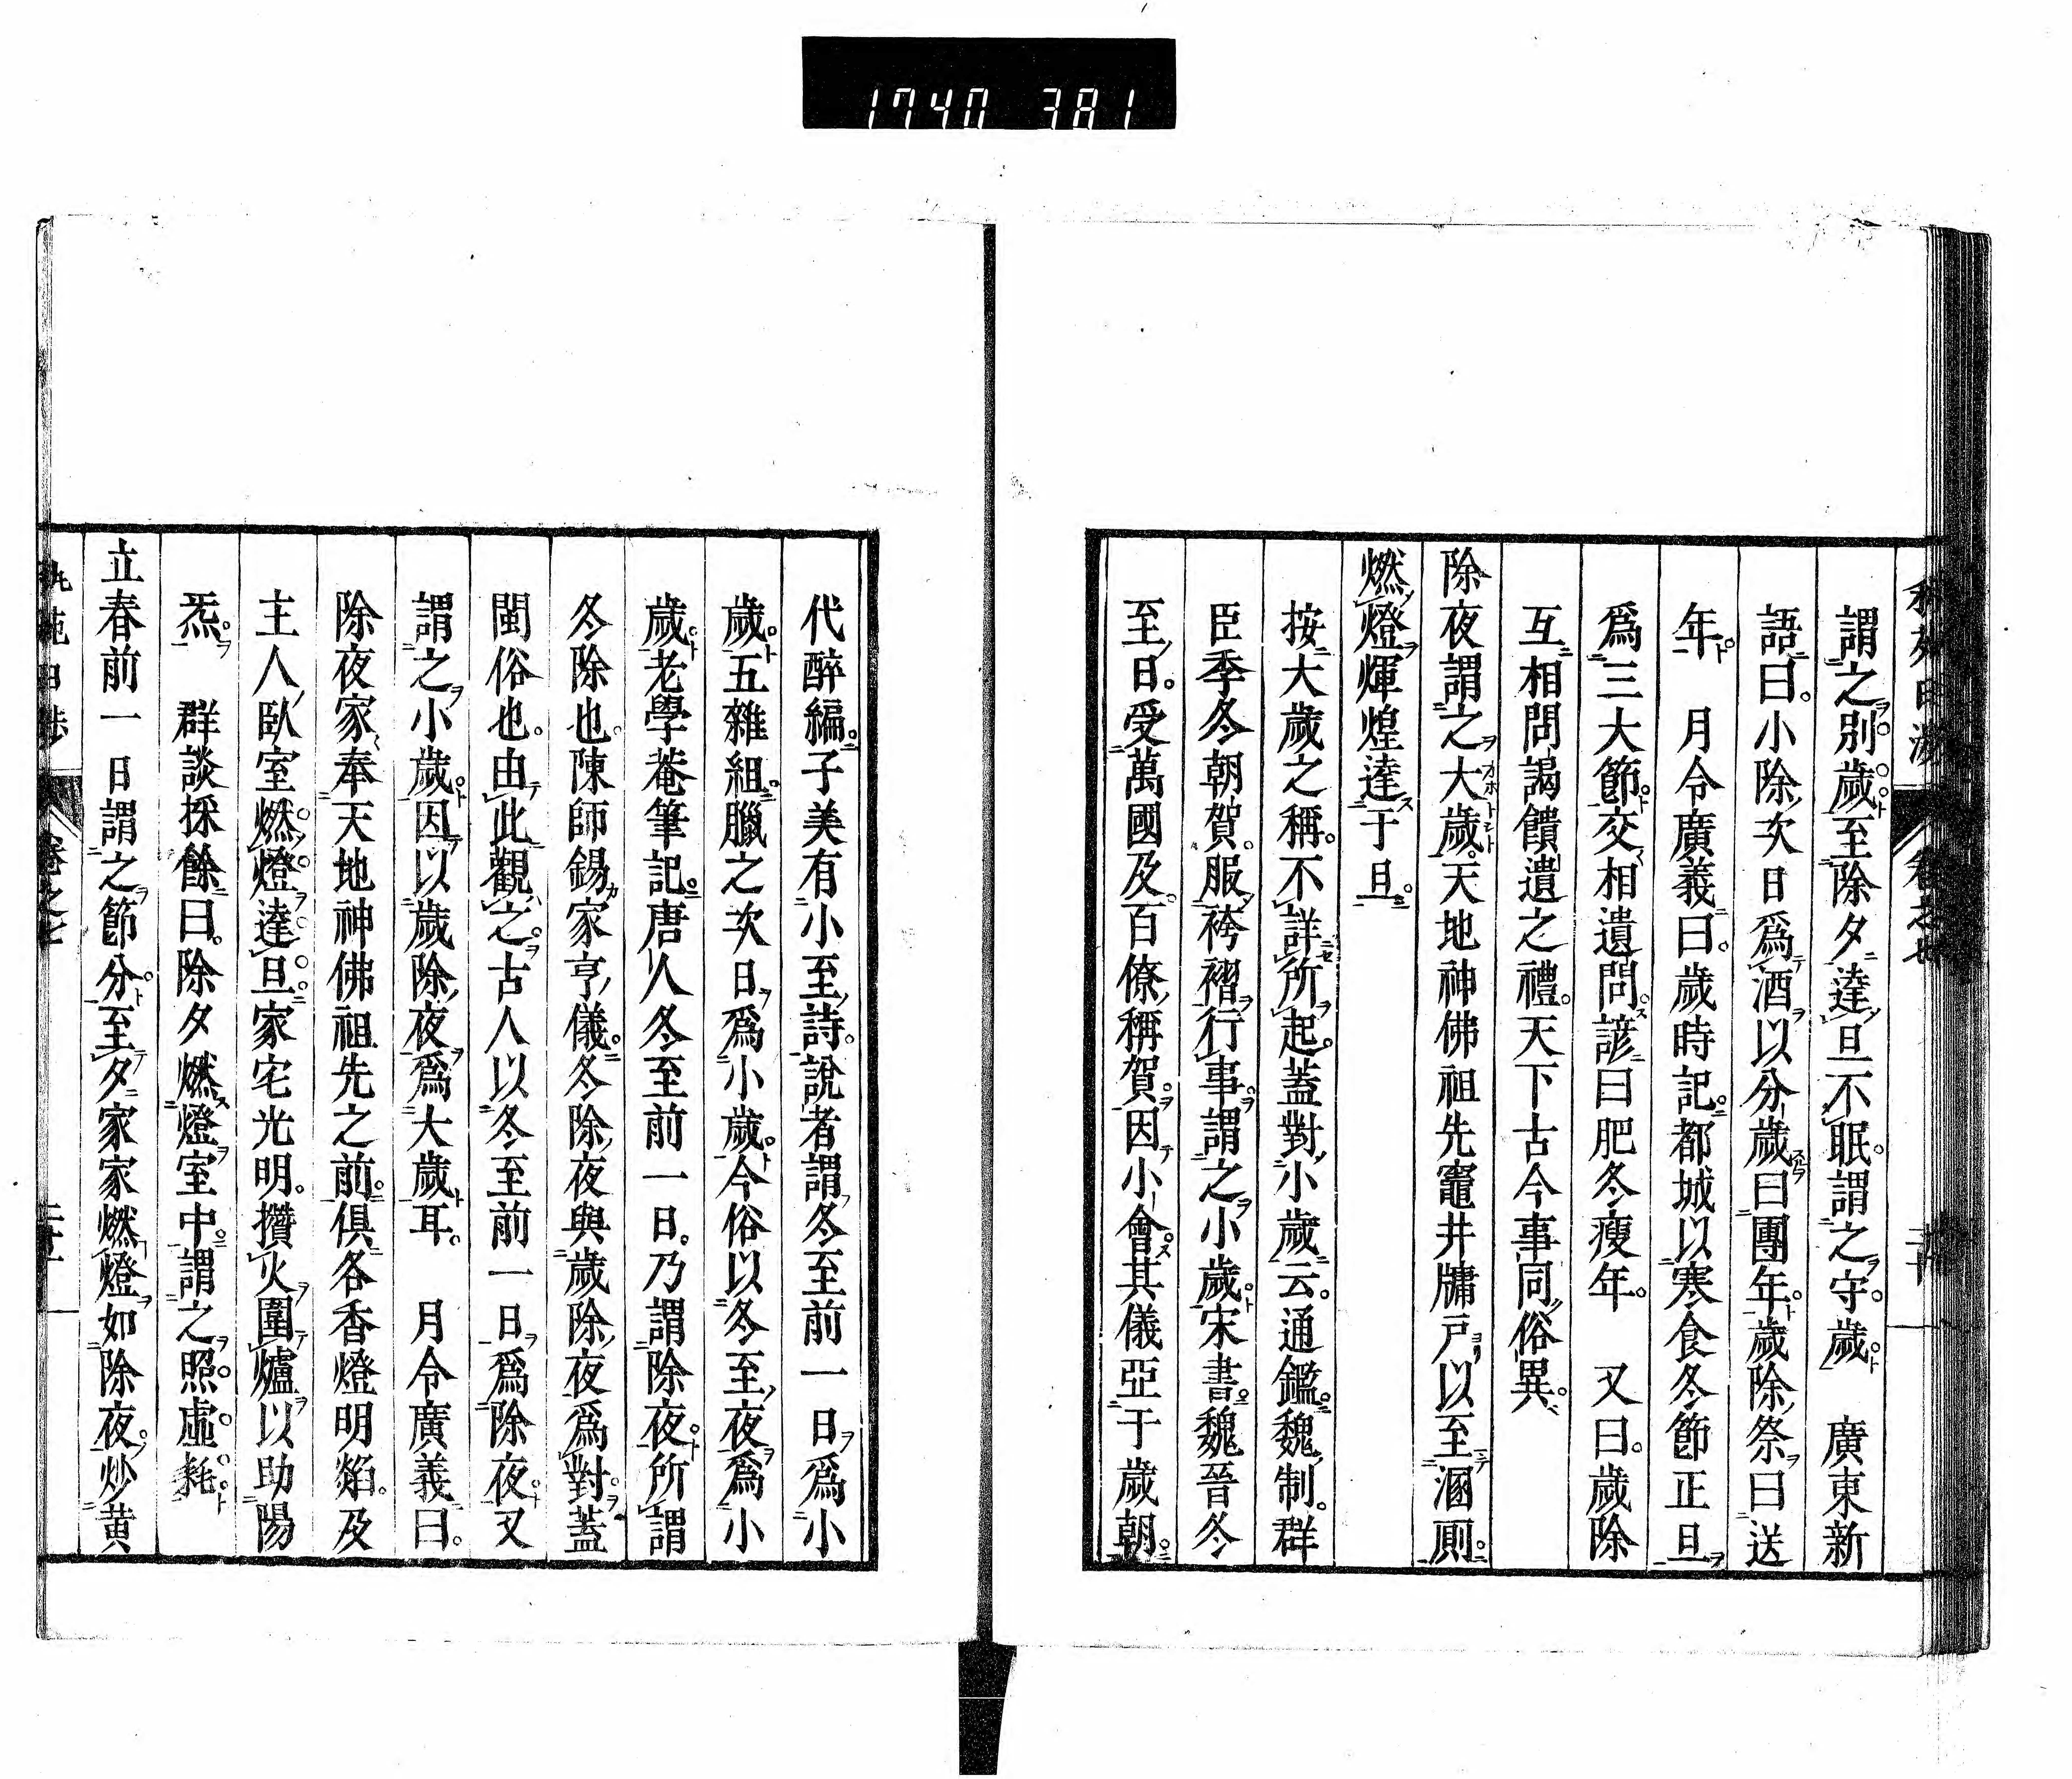 1740 381
謂之別歲至除夕達旦不眠謂之守歲　廣東新
語曰小除次日爲酒以分歲曰團年歲除祭曰送
年　月令廣義曰歲時記都城以寒食冬節正旦
爲三大節交相遺問諺曰肥冬瘦年　又曰歲除
互相問謁饋遺之禮天下古今事同俗異
除夜謂之大歲天地神佛祖先竈井牗戸以至溷厠
燃燈輝煌達于旦
按大歲之稱不詳所起蓋對小歲云通鑑魏制群
臣季冬朝賀服袴褶行事謂之小歲宋書魏晉冬
至日受萬國及百僚稱賀因小會其儀亞于歲朝
代醉編子美有小至詩說者謂冬至前一日爲小
歲五雜組臘之次日爲小歲今俗以冬至夜爲小
歲老學菴筆記唐人冬至前一日乃謂除夜所謂
冬除也陳師錫家亨儀冬除夜與歲除夜爲對蓋
閩俗也由此觀之古人以冬至前一日爲除夜又
謂之小歲因以歲除夜爲大歲耳　月令廣義曰
除夜家奉天地神佛祖先之前俱各香燈明熖及
主人臥室燃燈達旦家宅光明攢火圍爐以助陽
炁　群談採餘曰除夕燃燈室中謂之照虛耗
立春前一日謂之節分至夕家家燃燈如除夜炒黄